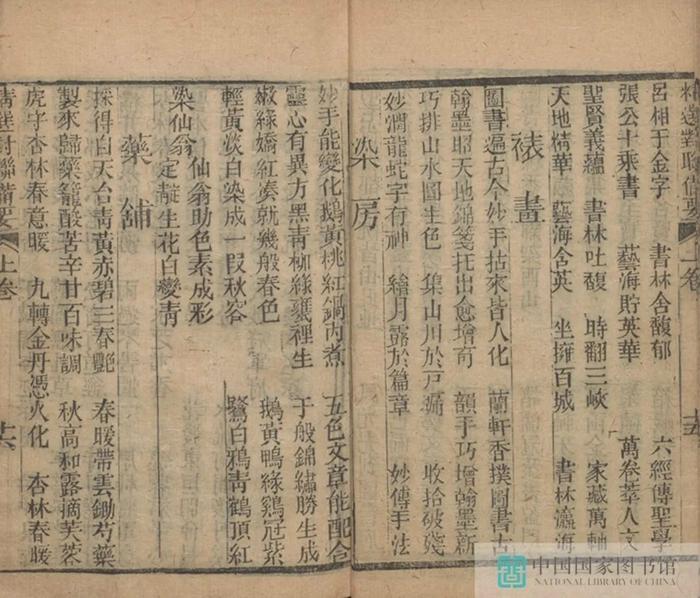 呂相于金字　書林含馥郁　六經傳聖學
張公十乘書　藝海貯英華　萬卷萃人文
聖賢義蘊　書林吐馥　時翻三峽　家藏萬軸
天地精華　藝海含英　坐擁百城　書林瀛海
裱畫
圖書遍古今妙手拈來皆人化　蘭軒香撲圖書古
翰墨昭天地錦箋托出愈增奇　韻手巧增翰墨新
巧排山水圖生色　集山川於戸牖　收拾破殘
妙潤龍蛇字有神　繪月露於篇章　妙傳手法
染房
妙手能變化鵝黃桃紅鍋内煮　五色文章能配合
靈心有異方黑青柳綠甕裡生　千般錦繡勝生成
嫩綠嬌紅凑就幾般春色　鵝黃鴨綠鷄冠紫
輕黃淡白染成一叚秋容　鷺白鴉青鶴頂紅
仙翁助色素成彩
染仙翁
定靛生花白變青
藥舖
採得白天台青黃赤碧三春艷　春暖帶雲鋤芍藥
製來歸藥籠酸苦辛甘百味調　秋高和露摘芙蓉
虎守杏林春意暖　九轉金丹憑火化　杏林春暖
精選對聯備要　上卷
中国国家图书馆
NATIONAL LIBRARY OF CHINA